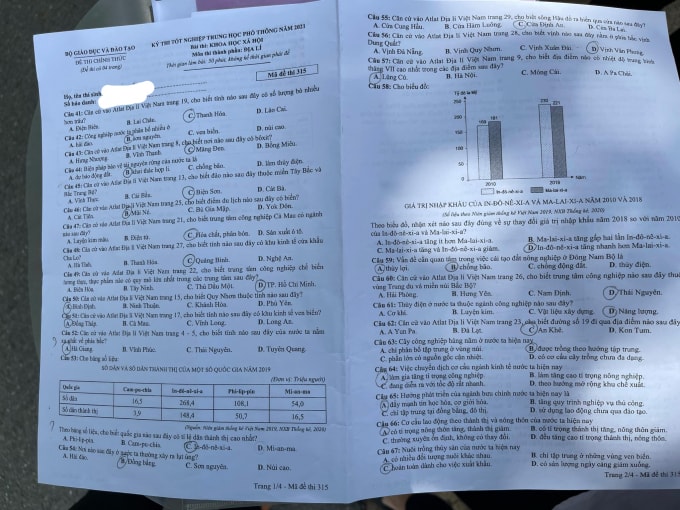 BỘ GIÁO DỤC VÀ ĐÀO TẠO
ĐỀ THI CHÍNH THỨC
(Đề thi có 04 trang)
KỲ THI TỐT NGHIỆP TRUNG HỌC PHỔ THÔNG NĂM 2021
Bài thi: KHOA HỌC XÃ HỘI
Môn thi thành phần: ĐỊA LÍ
Thời gian làm bài: 50 phút, không kể thời gian phát đề
Họ, tên thí sinh:
Số báo danh:
Mã đề thi 315
Câu 41: Căn cứ vào Atlat Địa lí Việt Nam trang 19, cho biết tỉnh nào sau đây có số lượng bò nhiều
hơn trâu?
A. Điện Biên. B. Lai Châu. C. Thanh Hóa. D. Lào Cai.
Câu 42: Công nghiệp nước ta phân bố nhiều ở
A. hải đảo. B. sơn nguyên. C. ven biển. D. núi cao.
Câu 43: Căn cứ vào Atlat Địa lí Việt Nam trang 8, cho biết nơi nào sau đây có bôxit?
A. Hưng Nhượng. B. Vĩnh Thạnh. C. Măng Đen. D. Bồng Miêu.
Câu 44: Biện pháp bảo vệ tài nguyên rừng của nước ta là
A. dự báo động đất. B. khai thác hợp lí. C. chống bão. D. làm thủy điện.
Câu 45: Căn cứ vào Atlat Địa lí Việt Nam trang 13, cho biết đảo nào sau đây thuộc miền Tây Bắc và
Bắc Trung Bộ?
A. Vĩnh Thực. B. Cái Bầu. C. Biện Sơn. D. Cát Bà.
Câu 46: Căn cứ vào Atlat Địa lí Việt Nam trang 25, cho biết điểm du lịch nào sau đây có biển?
A. Cát Tiên. B. Mũi Né. C. Bù Gia Mập. D. Yok Đôn.
Câu 47: Căn cứ vào Atlat Địa lí Việt Nam trang 21, cho biết trung tâm công nghiệp Cà Mau có ngành
nào sau đây?
A. Luyện kim màu. B. Điện tử. C. Hóa chất, phân bón. D. Sản xuất ô tô.
Câu 48: Căn cứ vào Atlat Địa lí Việt Nam trang 27, cho biết tỉnh nào sau đây có khu kinh tế cửa khẩu
Cha Lo?
A. Hà Tĩnh. B. Thanh Hóa. C. Quảng Bình. D. Nghệ An.
Câu 49: Căn cứ vào Atlat Địa lí Việt Nam trang 22, cho biết trung tâm công nghiệp chế biến
lương thực, thực phẩm nào có quy mô lớn nhất trong các trung tâm sau đây?
A. Biên Hòa. B. Tây Ninh. C. Thủ Dầu Một. D. TP. Hồ Chí Minh.
Câu 50: Căn cứ vào Atlat Địa lí Việt Nam trang 15, cho biết Quy Nhơn thuộc tỉnh nào sau đây?
A. Bình Định. B. Ninh Thuận. C. Khánh Hòa. D. Phú Yên.
Câu 51: Căn cứ vào Atlat Địa lí Việt Nam trang 17, cho biết tỉnh nào sau đây có khu kinh tế ven biển?
A. Đồng Tháp. B. Cà Mau. C. Vĩnh Long. D. Long An.
Câu 52: Căn cứ vào Atlat Địa lí Việt Nam trang 4 - 5, cho biết tỉnh nào sau đây của nước ta nằm
A. Hà Giang. B. Vĩnh Phúc. C. Thái Nguyên. D. Tuyên Quang.
Câu 53: Cho bảng số liệu:
SỐ DÂN VÀ SỐ DÂN THÀNH THỊ CỦA MỘT SỐ QUỐC GIA NĂM 2019
(Đơn vị: Triệu người)
Quốc gia Cam-pu-chia In-đô-nê-xi-a Phi-lip-pin Mi-an-ma
Số dân 16,5 268,4 108,1 54,0
Số dân thành thị 3,9 148,4 50,7 16,5
(Nguồn: Niên giám thống kê Việt Nam 2019, NXB Thống kê, 2020)
Theo bảng số liệu, cho biết quốc gia nào sau đây có tỉ lệ dân thành thị cao nhất?
A. Phi-lip-pin. B. Cam-pu-chia. C. In-đô-nê-xi-a. D. Mi-an-ma.
Câu 54: Nơi nào sau đây ở nước ta thường xảy ra lụt úng?
A. Hải đảo. B. Đồng bằng. C. Sơn nguyên. D. Núi cao.
Trang 1/4 - Mã đề thi 315
Câu 55: Căn cứ vào Atlat Địa lí Việt Nam trang 29, cho biết sông Hậu đổ ra biển qua cửa nào sau đây?
A. Cửa Cung Hầu. B. Cửa Hàm Luông. C. Cửa Định An. D. Cửa Ba Lai.
Câu 56: Căn cứ vào Atlat Địa lí Việt Nam trang 28, cho biết vịnh nào sau đây nằm ở phía bắc vịnh
Dung Quất?
A. Vịnh Đà Nẵng. B. Vịnh Quy Nhơn. C. Vịnh Xuân Đài. D. Vịnh Vân Phong.
Câu 57: Căn cứ vào Atlat Địa lí Việt Nam trang 9, cho biết địa điểm nào có nhiệt độ trung bình
tháng VII cao nhất trong các địa điểm sau đây?
A. Láng Cù. B. Hà Nội. C. Móng Cái. D. A Pa Chải.
Câu 58: Cho biểu đồ:
Tỷ đô la Mỹ
250
200
150
100
50
0
169
181
230
231
2010
2018
Năm
In-đô-nê-xi-a Ma-lai-xi-a
GIÁ TRỊ NHẬP KHẨU CỦA IN-ĐÔ-NÊ-XI-A VÀ MA-LAI-XI-A NĂM 2010 VÀ 2018
(Số liệu theo Niên giám thống kê Việt Nam 2019, NXB Thống kê, 2020)
Theo biểu đồ, nhận xét nào sau đây đúng về sự thay đổi giá trị nhập khẩu năm 2018 so với năm 2010
của In-đô-nê-xi-a và Ma-lai-xi-a?
A. In-đô-nê-xi-a tăng ít hơn Ma-lai-xi-a. B. Ma-lai-xi-a tăng gấp hai lần In-đô-nê-xi-a.
C. Ma-lai-xi-a tăng và In-đô-nê-xi-a giảm. D. In-đô-nê-xi-a tăng nhanh hơn Ma-lai-xi-a.
Câu 59: Vấn đề cần quan tâm trong việc cải tạo đất nông nghiệp ở Đông Nam Bộ là
A. thủy lợi. B. chống bão. C. chống động đất. D. thủy điện.
Câu 60: Căn cứ vào Atlat Địa lí Việt Nam trang 26, cho biết trung tâm công nghiệp nào sau đây thuộc
vùng Trung du và miền núi Bắc Bộ?
A. Hải Phòng. B. Hưng Yên. C. Nam Định. D. Thái Nguyên.
Câu 61: Thủy điện ở nước ta thuộc ngành công nghiệp nào sau đây?
A. Cơ khí. B. Luyện kim. C. Vật liệu xây dựng. D. Năng lượng.
Câu 62: Căn cứ vào Atlat Địa lí Việt Nam trang 23, cho biết đường số 19 đi qua địa điểm nào sau đây?
A. A Yun Pa. B. Đà Lạt. C. An Khê. D. Kon Tum.
Câu 63: Cây công nghiệp hàng năm ở nước ta hiện nay
A. chỉ phân bố tập trung ở vùng núi. B. được trồng theo hướng tập trung.
C. phần lớn có nguồn gốc cận nhiệt. D. có cơ cấu cây trồng chưa đa dạng.
Câu 64: Việc chuyển dịch cơ cấu ngành kinh tế nước ta hiện nay
A. làm gia tăng tỉ trọng công nghiệp. B. làm tăng cao tỉ trọng nông nghiệp.
C. đang diễn ra với tốc độ rất nhanh. D. theo hướng mở rộng khu chế xuất.
Câu 65: Hướng phát triển của ngành bưu chính nước ta hiện nay là
A. đẩy mạnh tin học hóa, cơ giới hóa. B. tăng quy trình nghiệp vụ thủ công.
C. chỉ tập trung tại đồng bằng, đô thị. D. sử dụng lao động chưa qua đào tạo.
Câu 66: Cơ cấu lao động theo thành thị và nông thôn của nước ta hiện nay
A. có tỉ trọng nông thôn tăng, thành thị giảm. B. có tỉ trọng thành thị tăng, nông thôn giảm.
C. thường xuyên ổn định, không có thay đổi. D. đều tăng cao tỉ trọng thành thị, nông thôn.
Câu 67: Nuôi trồng thủy sản của nước ta hiện nay
A. có nhiều đối tượng nuôi khác nhau. B. chỉ tập trung ở những vùng ven biển.
C. hoàn toàn dành cho việc xuất khẩu. D. có sản lượng ngày càng giảm xuống.
Trang 2/4 - Mã đề thi 315